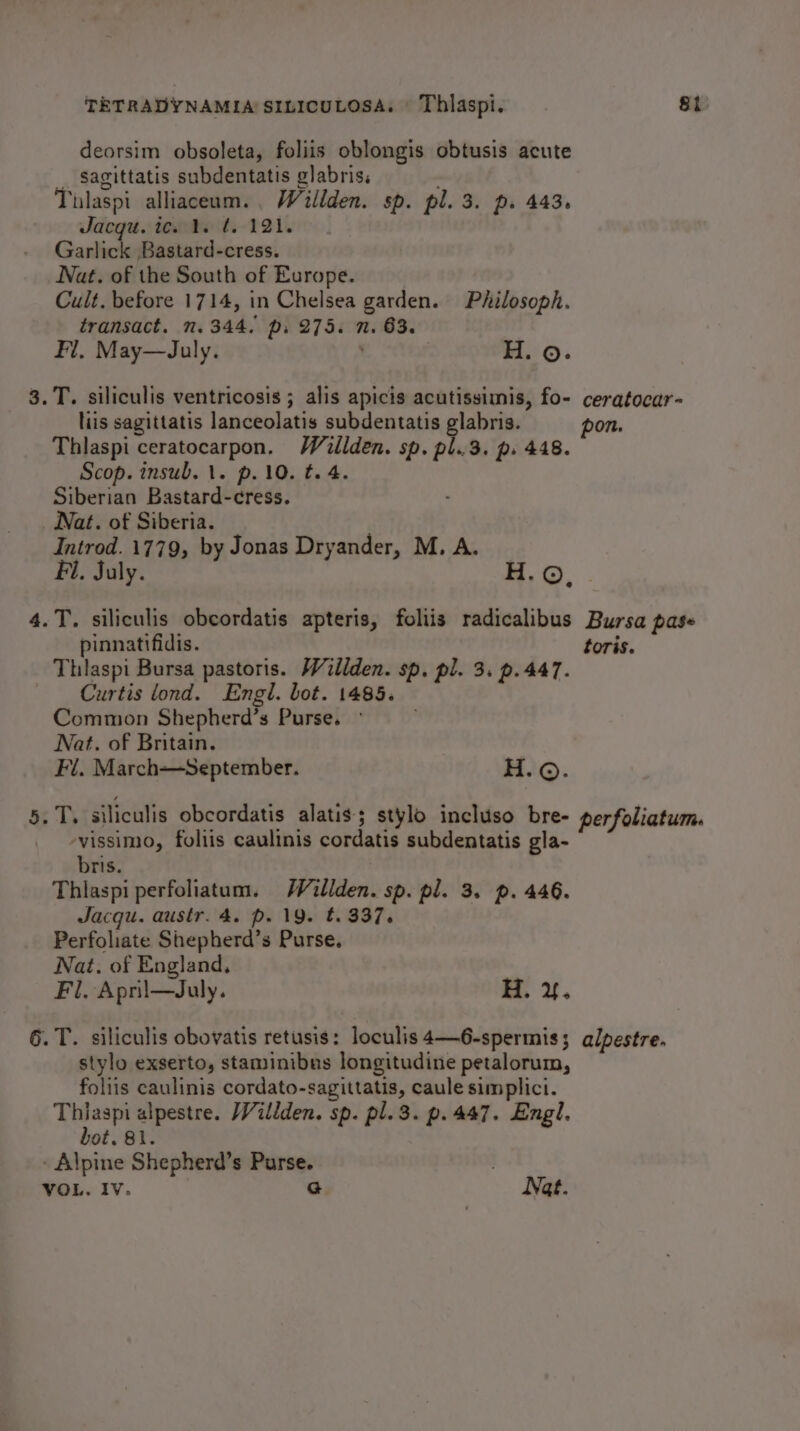 TETRADYNAMIA SILICULOSA. Thlaspi. 81
deorsim obsoleta, foliis oblongis obtusis acute
sagittatis subdentatis glabris.
Thlaspi alliaceum. Willden. sp. pl. 3. p. 443.
Jacqu. ic. 1. t. 121.
Garlick Bastard-cress.
Nat. of the South of Europe.
Cult. before 1714, in Chelsea garden. Philosoph.
transact. n. 344. p. 275. n. 63.
Fl. May—July. H. ☉.
3. T. siliculis ventricosis; alis apicis acutissimis, fo- ceratocar-
liis sagittatis lanceolatis subdentatis glabris. pon.
Thlaspi ceratocarpon. Willden. sp. pl. 3. p. 448.
Scop. insub. 1. p. 10. t. 4.
Siberian Bastard-cress.
Nat. of Siberia.
Introd. 1779, by Jonas Dryander, M. A.
Fl. July. H. ☉.
4. T. siliculis obcordatis apteris, foliis radicalibus Bursa pas-
pinnatifidis. toris.
Thlaspi Bursa pastoris. Willden. sp. pl. 3. p. 447.
Curtis lond. Engl. bot. 1485.
Common Shepherd's Purse.
Nat. of Britain.
Fl. March—September. H. ☉.
5. T. siliculis obcordatis alatis; stylo incluso bre- perfoliatum.
vissimo, foliis caulinis cordatis subdentatis gla-
bris.
Thlaspi perfoliatum. Willden. sp. pl. 3. p. 446.
Jacqu. austr. 4. p. 19. t. 337.
Perfoliate Shepherd's Purse.
Nat. of England.
Fl. April—July. H. ♃.
6. T. siliculis obovatis retusis: loculis 4—6-spermis; alpestre.
stylo exserto, staminibus longitudine petalorum,
foliis caulinis cordato-sagittatis, caule simplici.
Thlaspi alpestre. Willden. sp. pl. 3. p. 447. Engl.
bot. 81.
Alpine Shepherd's Purse.
VOL. IV. G Nat.